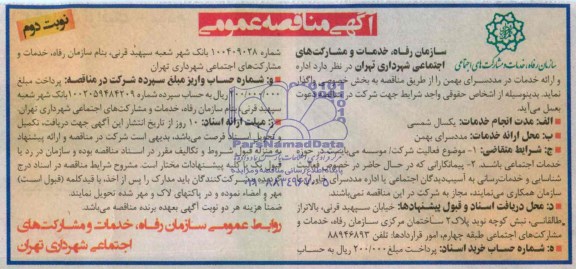 آگهی مناقصه عمومی
نوبت دوم
سازمان رفاه، خدمات و مشارکت‌های اجتماعی
سازمان رفاه، خدمات و مشارکت‌های
اجتماعی شهرداری تهران در نظر دارد اداره
و ارائه خدمات در مددسرای بهمن را از طریق مناقصه به بخش خصوصی واگذار
نماید. بدینوسیله از اشخاص حقوقی واجد شرایط جهت شرکت در مناقصه دعوت
بعمل می‌آید.
الف: مدت انجام خدمات: یکسال شمسی
ب: محل ارائه خدمات: مددسرای بهمن
ج: شرایط متقاضی: ۱- موضوع فعالیت شرکت/ موسسه می‌بایست در حوزه
خدمات اجتماعی باشند. ۲- پیمانکارانی که در حال حاضر در حوزه
شناسایی و خدمات‌رسانی به آسیب‌دیدگان اجتماعی یا اداره مددسرای
سازمان همکاری می‌نمایند، مجاز به شرکت در این مناقصه نمی‌باشند.
د: محل دریافت اسناد و قبول پیشنهادها: خیابان سپهبد قرنی، بالاتر از
طالقانی، نبش کوچه نوید پلاک ۲ ساختمان مرکزی سازمان رفاه، خدمات و
مشارکت‌های اجتماعی طبقه چهارم، امور قراردادها. تلفن ۸۸۹۴۶۸۹۳
ه: شماره حساب خرید اسناد: پرداخت مبلغ ۲۰۰/۰۰۰ ریال به حساب
شماره ۱۰۰۴۰۹۰۲۸ بانک شهر شعبه سپهبد قرنی، بنام سازمان رفاه، خدمات و
مشارکت‌های اجتماعی شهرداری تهران
و: شماره حساب واریز مبلغ سپرده شرکت در مناقصه: پرداخت مبلغ
ریال به حساب سپرده شماره ۱۰۰۲۰۵۹۴۸۴۲۰۹ بانک شهر شعبه
سپهبد قرنی، بنام سازمان رفاه، خدمات و مشارکت‌های اجتماعی شهرداری تهران
ز: مهلت ارائه اسناد: ۱۰ روز از تاریخ انتشار این آگهی جهت دریافت، تکمیل
و تحویل اسناد فرصت می‌باشد. بدیهی است شرکت در مناقصه و ارائه پیشنهاد
به منزله قبول شروط و تکالیف مقرر در اسناد مناقصه بوده و سازمان در رد یا
قبول یک یا کل پیشنهادات مختار است. مشروح شرایط مناقصه در اسناد درج
گردیده شرکت‌کنندگان باید مدارک را پس از اخذ با قید کلمه (قبول است)
مهر و امضاء نموده و در پاکتهای لاک و مهر شده تحویل نمایند.
ضمناً هزینه هر دو نوبت آگهی بعهده برنده مناقصه می‌باشد.
روابط عمومی سازمان رفاه، خدمات و مشارکت‌های
اجتماعی شهرداری تهران
ParsNamadData